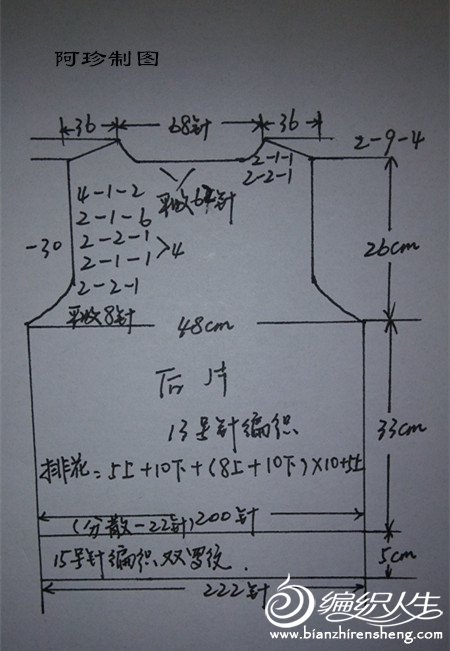 阿珍制图
36 68针 36
2-9-4
2-1-1
2-2-1
平收62针
4-1-2
2-1-6
2-2-1
2-1-1 >4
2-2-1
平收8针
-30
26cm
48cm
后片
13号针编织
33cm
排花=5上+10下+(8上+10下)×10+5上
(分散-22针)200针
15号针编织双罗纹.
5cm
222针
编织人生
www.bianzhirensheng.com